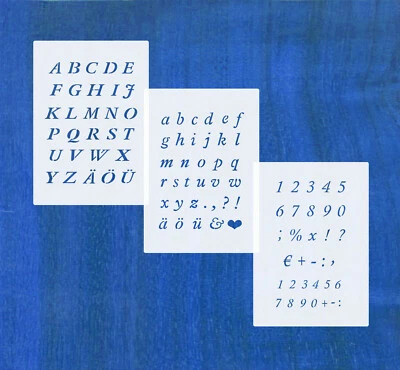 A B C D E
F G H I J
K L M N O
P Q R S T
U V W X
Y Z Ä Ö Ü
a b c d e f
g h i j k l
m n o p q
r s t u v w
x y z . , ? !
ä ö ü & ❤
1 2 3 4 5
6 7 8 9 0
; % x ! ?
€ + - : ,
1 2 3 4 5 6
7 8 9 0 + - :